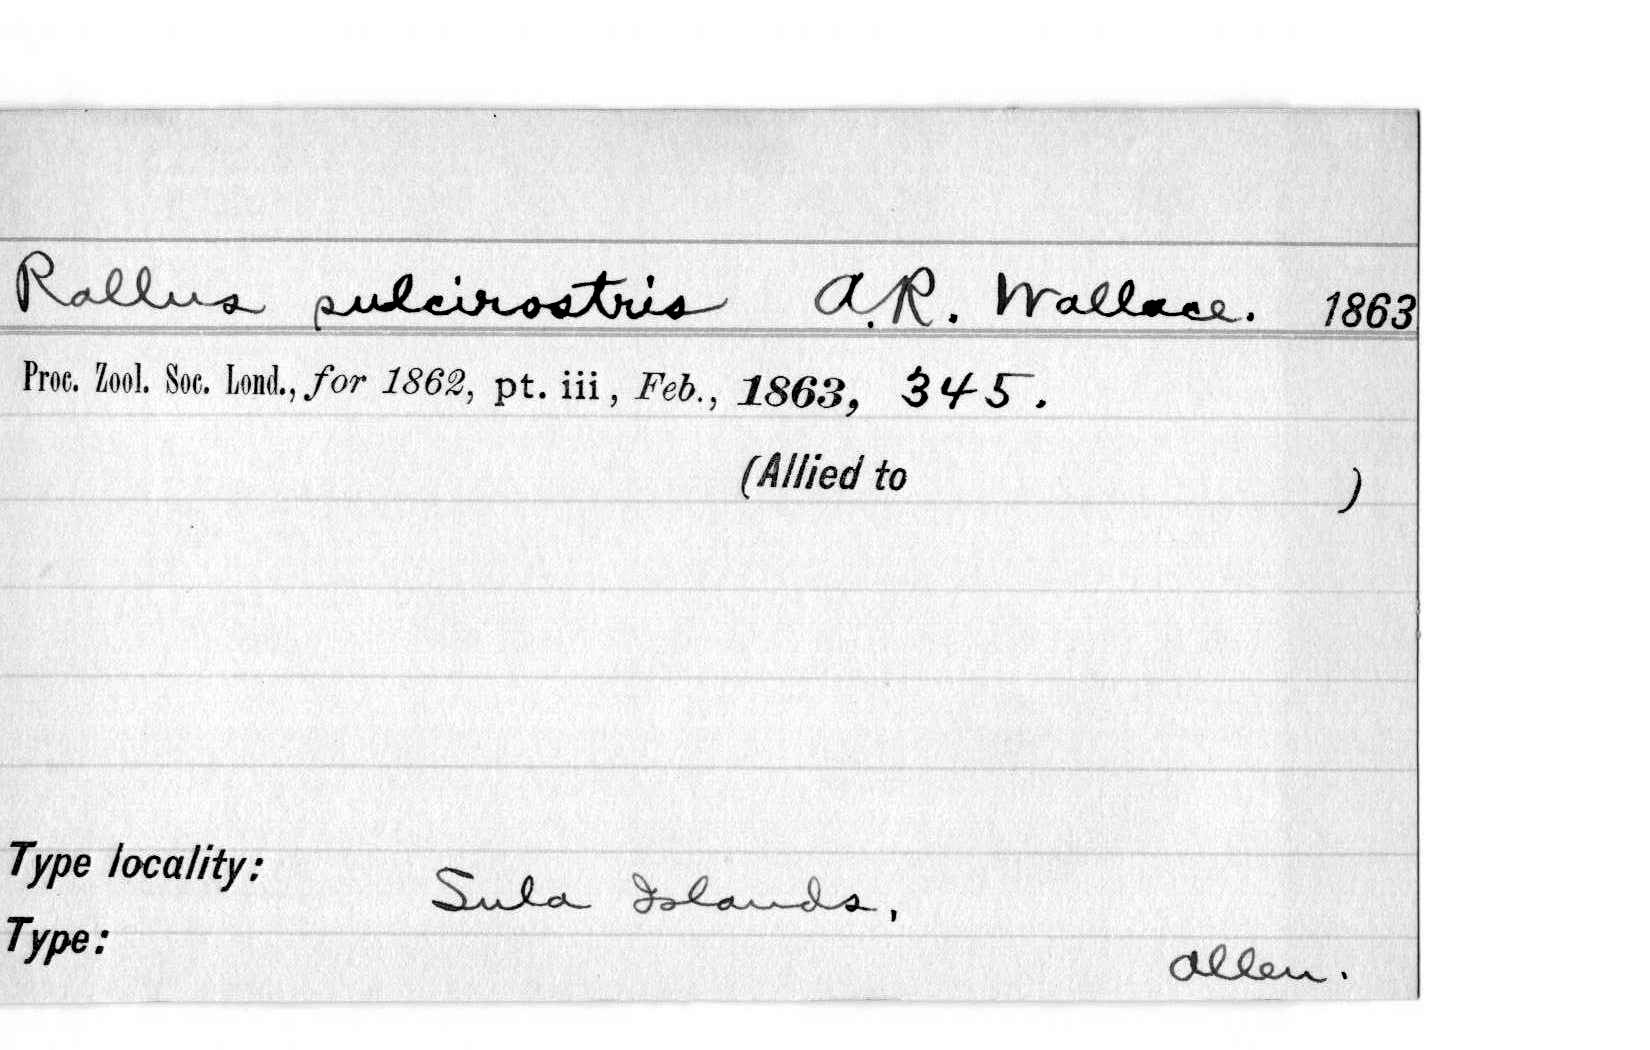 Rallus sulcirostris A.R. Wallace. 1863
Proc. Zool. Soc. Lond., for 1862, pt. iii, Feb., 1863, 345.
(Allied to )
Type locality: Sula Islands,
Type:
Allen.